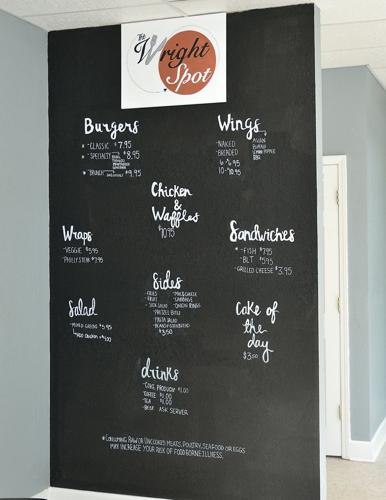 The
Wright
Spot
Burgers
* -CLASSIC $7.95
* -SPECIALTY $8.95
* -BRUNCH $9.95
Wings
-NAKED
-BREADED
ASIAN
BUFFALO
LEMON PEPPER
BBQ
6-6.95
10-10.95
Chicken
&
Waffles
$10.95
Wraps
-VEGGIE $5.95
-PHILLY STEAK $7.95
Sandwiches
* -FISH $7.95
-BLT $5.95
-GRILLED CHEESE $3.95
Sides
-FRIES
-FRUIT
-SIDE SALAD
-MAC & CHEESE
-CABBAGE
-ONION RINGS
-PRETZEL BITES
-PASTA SALAD
-BEANS & CORNBREAD
$3.50
Salad
-MIXED GREENS $5.95
ADD CHICKEN + $1.00
Cake of
the
day
$3.50
drinks
-COKE PRODUCT $1.00
-COFFEE $1.00
-TEA $1.00
ASK SERVER
*CONSUMING RAW OR UNCOOKED MEATS, POULTRY, SEAFOOD OR EGGS
MAY INCREASE YOUR RISK OF FOODBORNE ILLNESS.